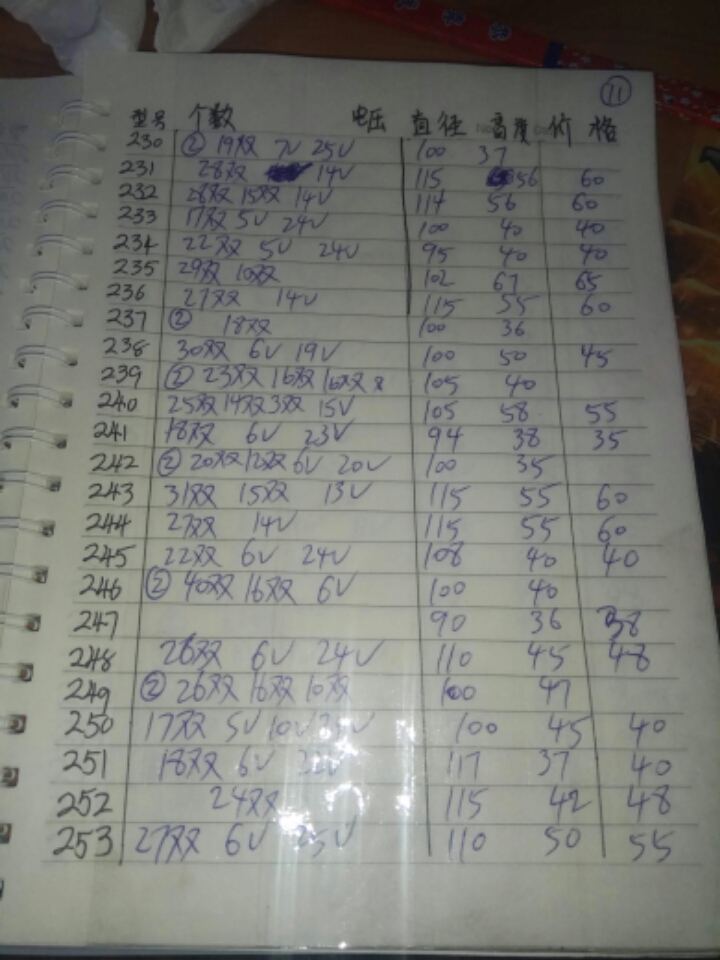 ⑪
型号 个数 电压 直径 高度 价格
230 ② 19双 7V 25V 100 37
231 28双 14V 115 56 60
232 28双 15双 14V 114 56 60
233 17双 5V 24V 100 40 40
234 22双 5V 24V 95 40 40
235 29双 10双 102 67 65
236 27双 14V 115 55 60
237 ② 18双 100 36
238 30双 6V 19V 100 50 45
239 ② 23双 16双 16双 105 40
240 25双 19双 3双 15V 105 58 55
241 18双 6V 23V 94 38 35
242 ② 20双 12双 6V 20V 100 35
243 31双 15双 13V 115 55 60
244 27双 14V 115 55 60
245 22双 6V 24V 108 40 40
246 ② 40双 16双 6V 100 40
247 90 36 38
248 26双 6V 24V 110 45 48
249 ② 26双 16双 10双 100 47
250 17双 5V 10V 100 45 40
251 18双 6V 117 37 40
252 24双 115 42 48
253 27双 6V 25V 110 50 55